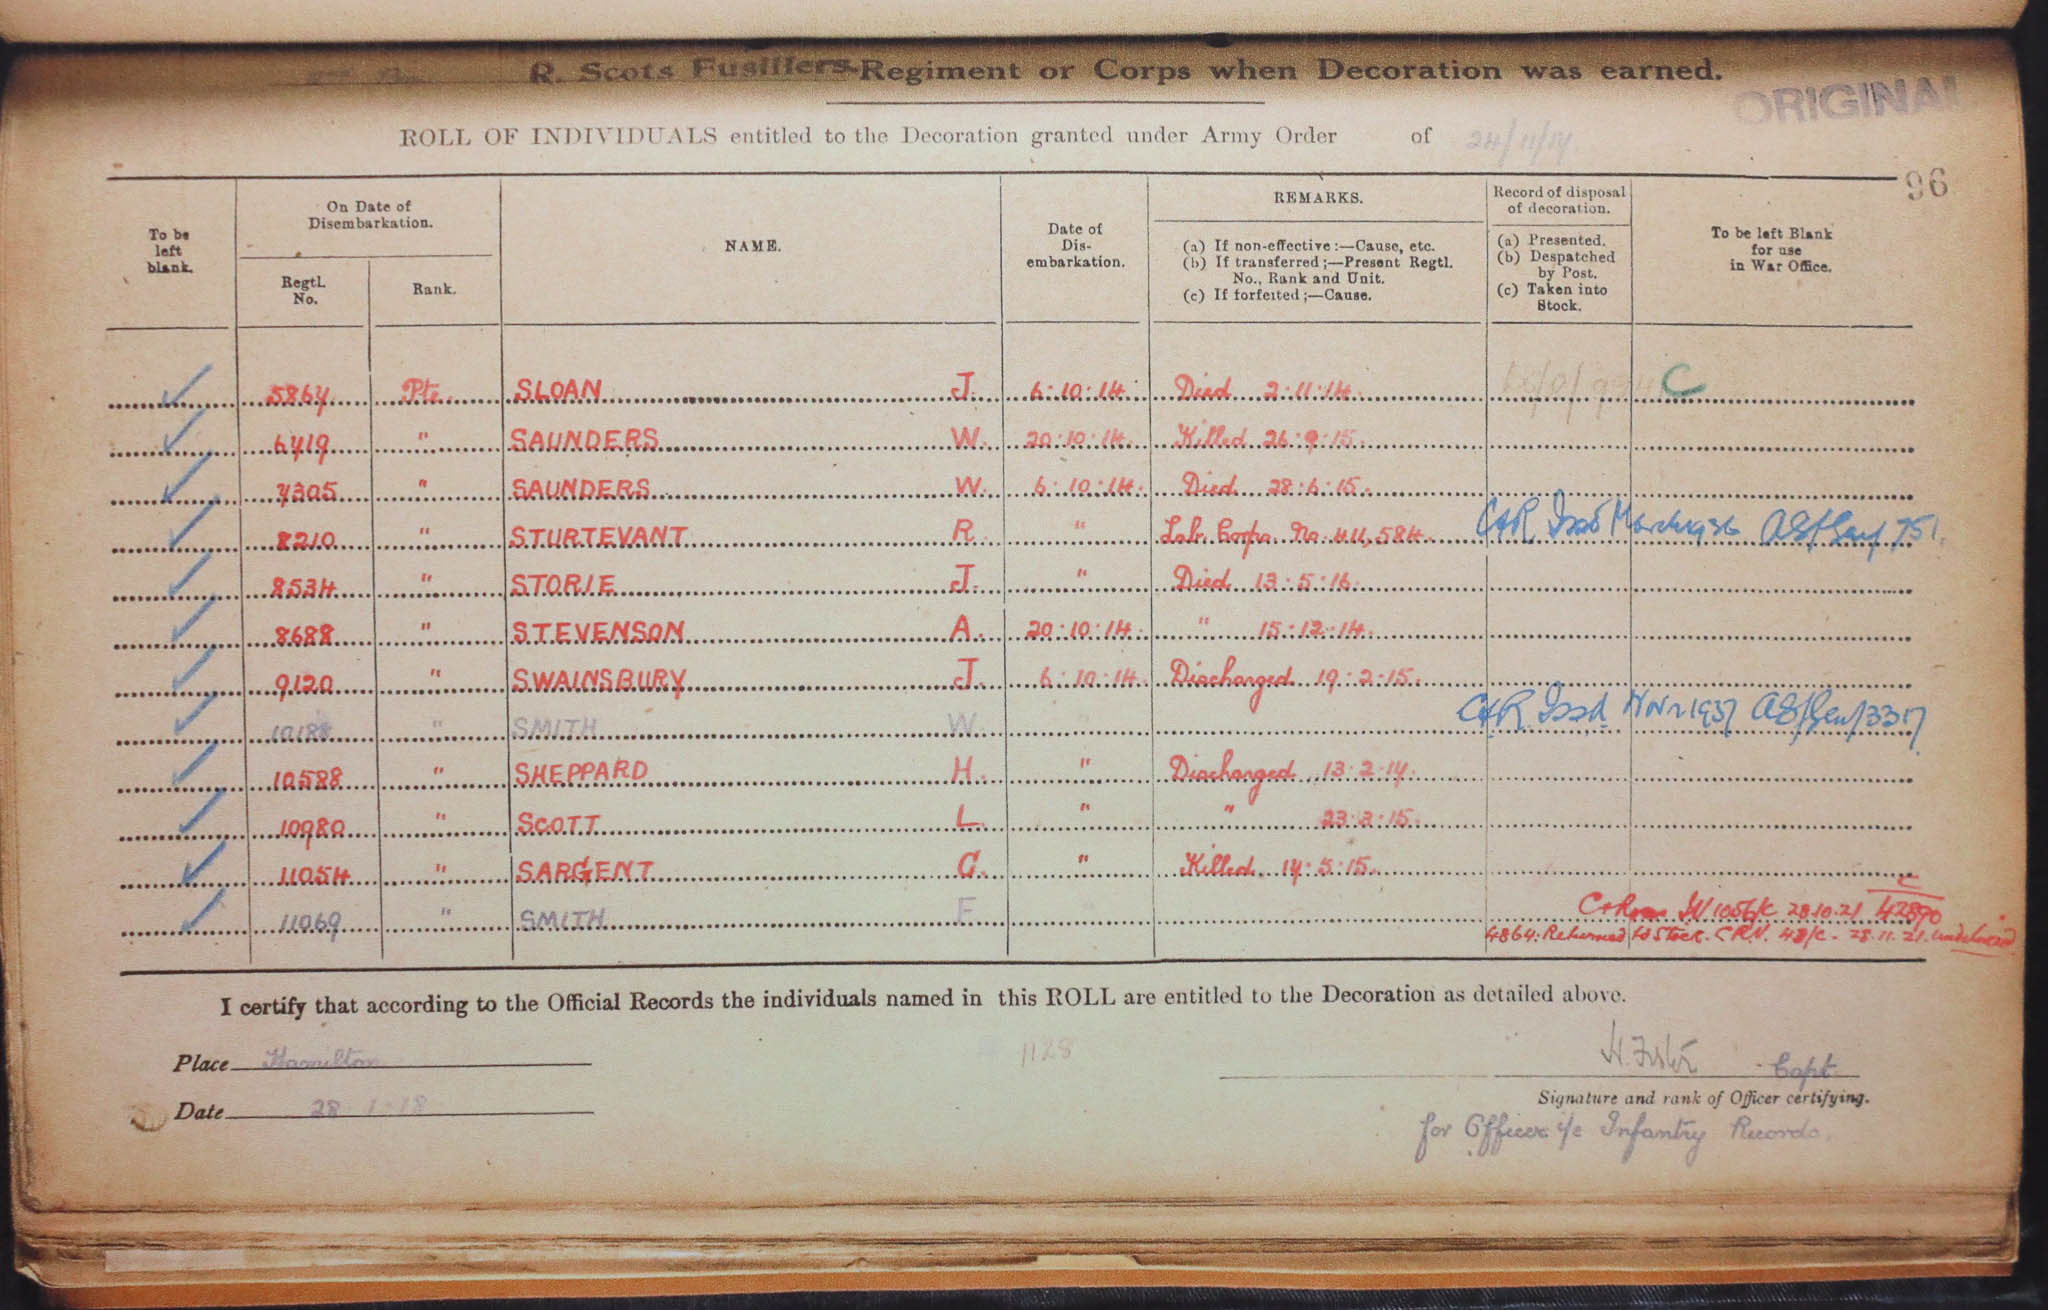 2nd Bn. R. Scots Fusiliers. Regiment or Corps when Decoration was earned.
ORIGINAL
ROLL OF INDIVIDUALS entitled to the Decoration granted under Army Order of 24/11/17
96
To be left blank.
On Date of Disembarkation.
Regtl. No.
Rank.
NAME.
Date of Dis-embarkation.
REMARKS.
(a) If non-effective:—Cause, etc.
(b) If transferred;—Present Regtl. No., Rank and Unit.
(c) If forfeited;—Cause.
Record of disposal of decoration.
(a) Presented.
(b) Despatched by Post.
(c) Taken into Stock.
To be left Blank for use in War Office.
5864 Pte. SLOAN J. 6.10.14. Died 2.11.14. C
6419 " SAUNDERS W. 20.10.14. Killed 26.9.15.
7305 " SAUNDERS W. 6.10.14. Died 28.6.15.
8210 " STURTEVANT R. " Lab. Corps. No. 411,584. C&R Issd March 1936 AS/Gen/751.
8534 " STORIE J. " Died 13.5.16.
8688 " STEVENSON A. 20.10.14. " 15.12.14.
9120 " SWAINSBURY J. 6.10.14. Discharged 19.2.15.
10188 " SMITH W. C&R Issd. Nov 1937 AS/Gen/3317
10588 " SHEPPARD H. " Discharged 13.2.17.
10980 " SCOTT L. " " 23.3.15.
11054 " SARGENT G. " Killed 17.5.15.
11069 " SMITH F C&R IV 1056/K 28.10.21 C/42890
4864. Returned to Stock. C.R.V. 48/c. 28.11.21. undelivered
I certify that according to the Official Records the individuals named in this ROLL are entitled to the Decoration as detailed above.
Place Hamilton
1128
H. Foster Capt.
Date 28.1.18
Signature and rank of Officer certifying.
for Officer i/c Infantry Records.